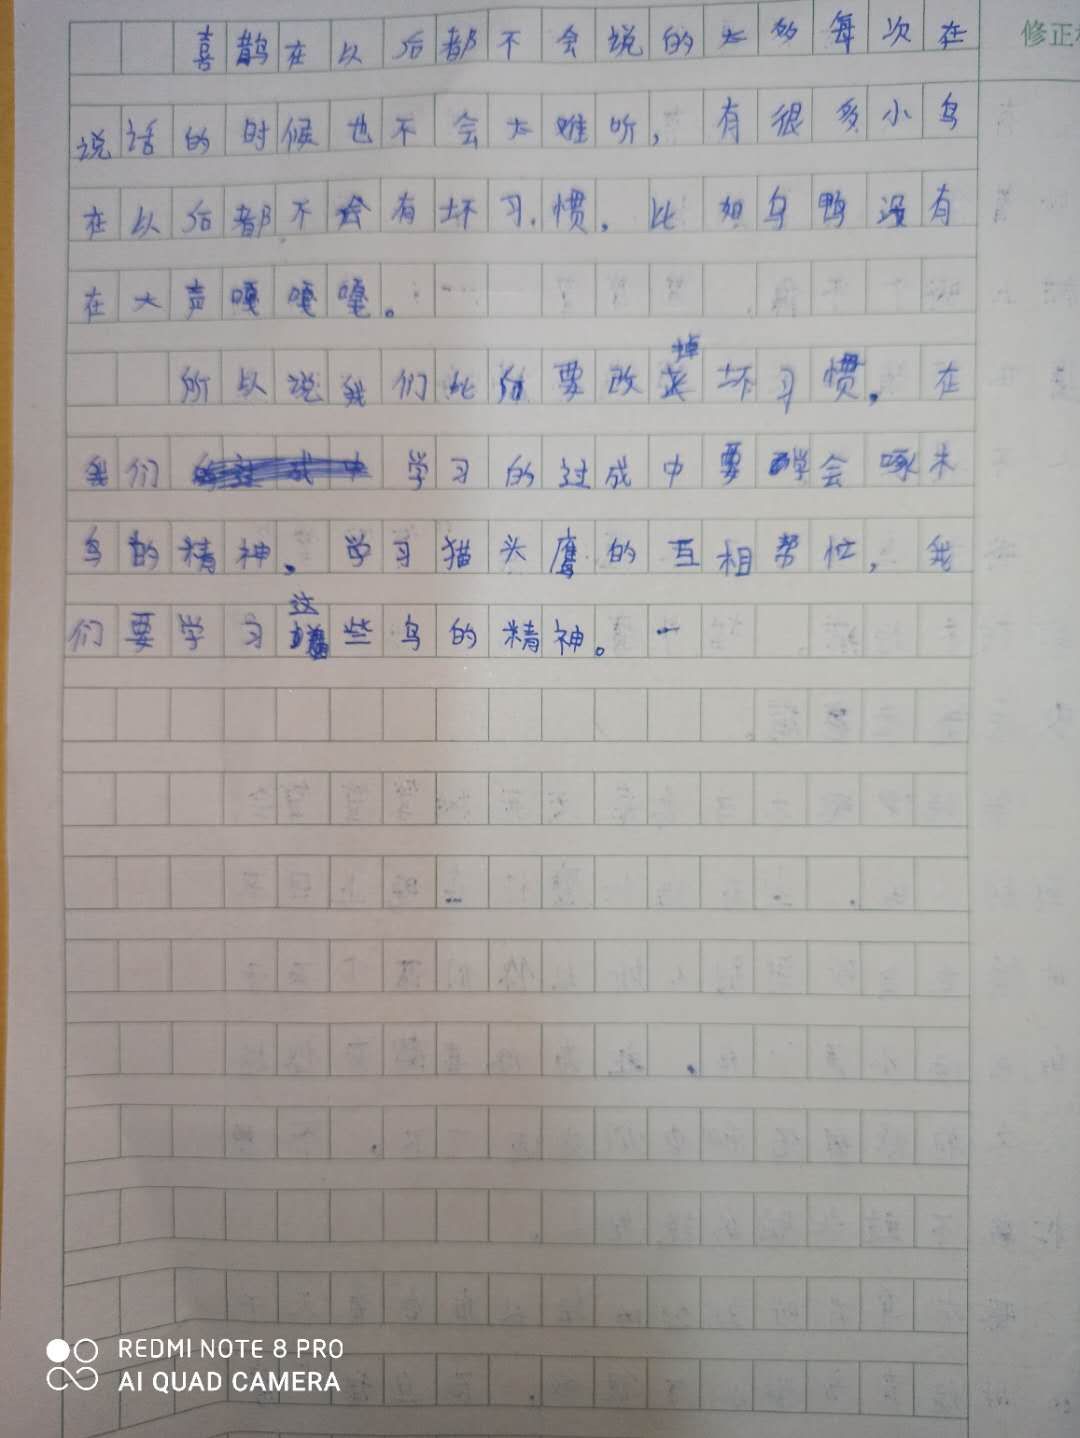 喜鹊在以后都不会说的太多每次在 修正
说话的时候也不会太难听，有很多小鸟
在以后都不会有坏习惯，比如乌鸭没有
在大声嘎嘎嘎。
所以说我们此后要改掉坏习惯，在
我们学习的过成中要学会啄木
鸟的精神。学习猫头鹰的互相帮忙，我
们要学习这些鸟的精神。
REDMI NOTE 8 PRO
AI QUAD CAMERA